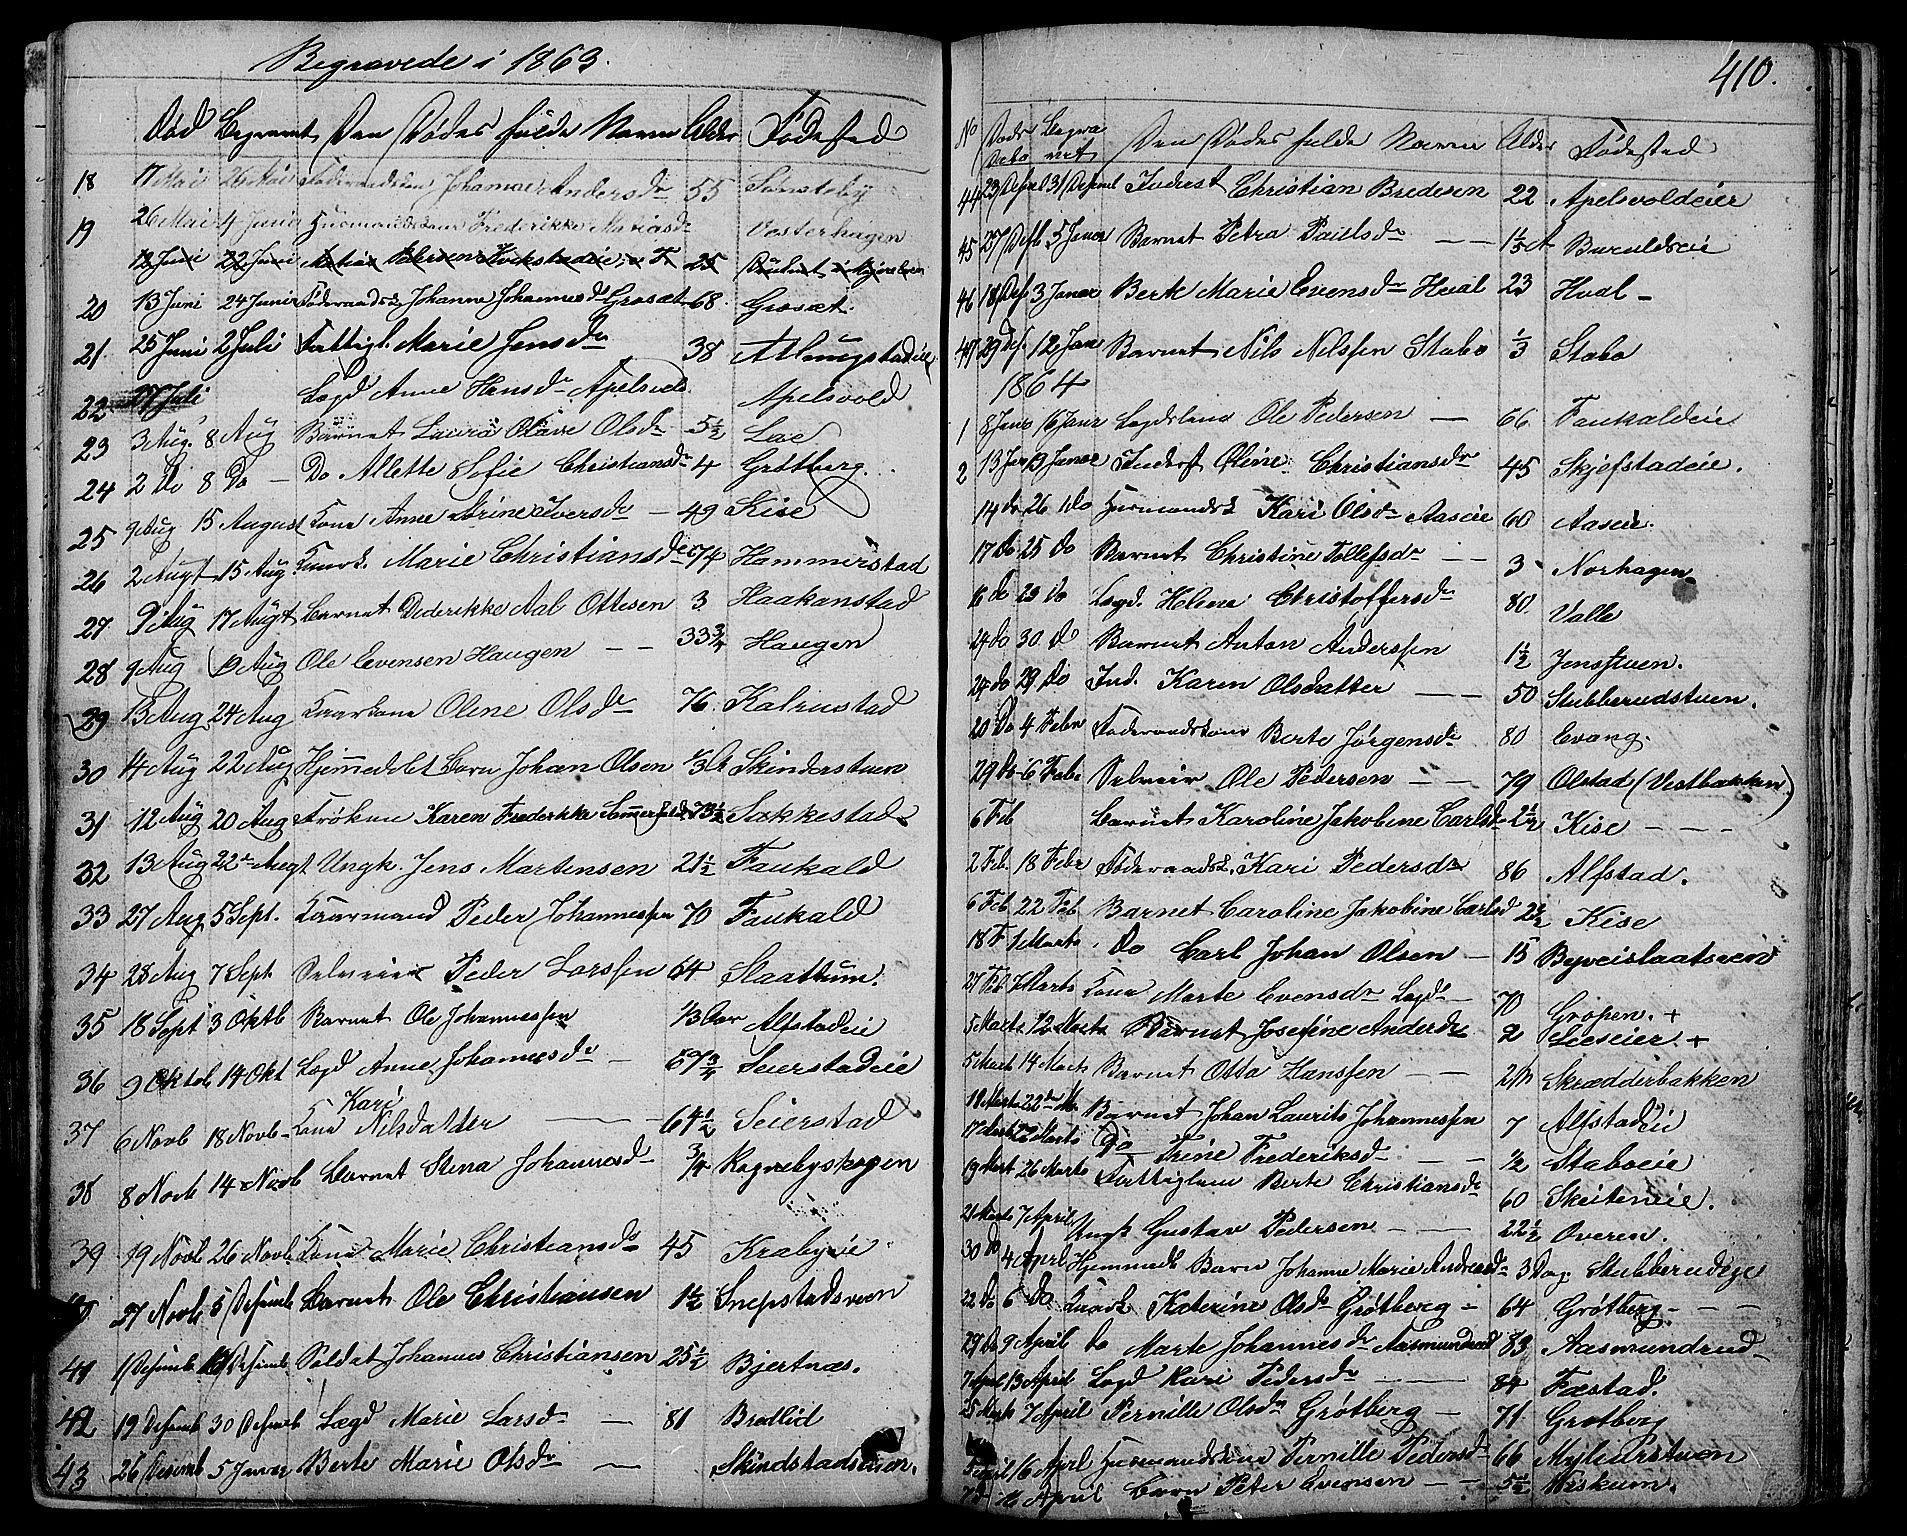 Begravede i 1863.
Död Begravet Den Dödes fulde Navn Alder Födested
18 17 Mai 26 Mai Johanne Andersdr 55 Sonsteby
19 26 Mai 4 Juni Husmandskone Frederikke Mariasdr Vosterhagen
12 Juni 22 Juni 25
20 13 Juni 24 Juni Föderaadsk. Johanne Johannesdr Grosæt 68. Grosæt.
21. 25 Juni 2 Juli Fattigl. Marie Jensdr 38 Atlungstadeie
22 27 Juli Lægd Anne Hansdr Apelsvold Apelsvold
23 3 Aug. 8 Aug Barnet Laura Olave Olsdr 5½ Loe
24 2 Do 8 Do — Do Allette Sofie Christiansdr 4 Grötberg.
25 9 Aug 15 August Kone Anne Iversdr — 49 Kise
26 2 Augt 15 Aug Marie Christiansdr 74 Hammerstad
27 9 Aug 17 Augt Barnet Diderikke Aal Ottesen 3 Haakonstad
28 9 Aug 19 Aug Ole Evensen Haugen — — 33¾ Haugen
29 13 Aug 24 Aug Olene Olsdr 76. Kalrustad
30 14 Aug 22 Aug Hjemmedöbt Barn Johan Olsen ⅓ Skinderstuen
31 12 Aug 20 Aug Fröken Karen Frederikke 73½ Sakkestad
32 13 Aug 22 Augt Ungk. Jens Martensen 21½ Faukald
33 27 Aug 5 Sept. Gaarmand Peder Johannessen 70 Faukald
34 28 Aug 7 Sept Selveier Peder Larssen 64 Slaattum.
35 18 Sept 3 Oktb Barnet Ole Johannessen ⅓ Aar Alfstadeie
36 9 Oktob 14 Okt Lægd Anne Johannesdr — 59¾ Seierstadeie
37 6 Novb 18 Novb Kone Kari Nilsdatter — 64½ Seierstad
38 8 Novb 14 Novb Barnet Stena Johannesdr ¾ Rognebyskogen
39 19 Novb 26 Novb Kone Marie Christiansdr 45 Krabyeie
27 Novb 5 Desemb Barnet Ole Christiansen 1½ Snepstadsveen
41 1 Desemb Desemb Soldat Johannes Christiansen 25½ Bjertnæs.
42 19 Desemb 30 Desemb Lægd Marie Larsdr — 81 Bredlid
43 26 Desemb 5 Januar Berte Marie Olsdr — Skindstadstuen.
410.
No Döds Dato Begravet Den Dödes fulde Navn Alder Födested
44 23 Desmb 31 Desmb Inderst Christian Bredesen 22 Apelsvoldeier
45 27 Desb 5 Januar Barnet Petra Paulsdr — — Buruldseie
46 18 Des 3 Januar Berte Marie Evensdr Hval 23 Hval —
47 29 Des 12 Jan Barnet Nils Nilssen Stabo ⅓ Stabo
1864
1 8 Jan 16 Janr Lægdslem Ole Pedersen — 66 Faukaldeie
2 13 Jan 19 Januar Inderst Oline Christiansdr 45 Skjefstadeie.
14 do 26 do Husmandsk Kari Olsdr Aaseie 60 Aaseie.
17 Do 25 Do Barnet Christine Tollefsdr — — 3 Norhagen
16 Do 29 Do Lægd. Helene Christoffersdr 80 Valle
24 Do 30 Do Barnet Anton Anderssen 1½ Jensstuen.
24 do 29 Do Ind. Karen Olsdatter — — 50 Stubberudstuen.
20 Do 4 Febr Föderaadskone Berte Jörgensdr 80 Evang.
29 Do 6 Febr Selveier Ole Pedersen — — 79 Olstad (Vestbakken)
6 Feb Barnet Karoline Jakobine Carlsdr 2½ Kise — — —
2 Feb. 18 Febr Föderaadsk. Kari Pedersdr 86 Alfstad.
6 Feb 22 Feb Barnet Caroline Jakobine Carlsd 2½ Kise
18 F 1 Marts Do Carl Johan Olsen — 15
27 Feb 7 Marts Kone Marte Evensdr Lægd — 70 Gropen. +
5 Marts 12 Marts Barnet Josefine Andersdr 2 Lieseier +
5 Mart 14 Mart Barnet Otto Hanssen — — 2 M Skrædderbakken
18 Marts 22 Barnet Johan Laurits Johannessen 7 Alfstadeie
17 Mart 22 Marts Do Trine Frederiksdr — — ½ Staboeie
19 Mart 26 Marts Fattiglem Berte Christiansdr 60 Skeiteneie.
21 Marts 7 April Ungk Gustav Pedersen — — 22½ Overen.
30 Do 4 April Hjemmedöb Barn Johanne Marie Andreasdr 3 Dag Stubberudeie
22 Do 6 Do Gaardk Katerine Olsdr Grötberg — 64 Grötberg — —
29 Do 9 April Do Marte Johannesdr Aasmundrud 83 Aasmundrud
7 April 13 April Lægd Kari Pedersdr — — — 84 Fæstad.
25 Marts 7 April Pernille Olsdr Grötberg — 71 Grötberg
April 16 April Husmandskone Pernille Pedersdr 66
16 April Barn Peter Evensen — 5½ Hiskum.